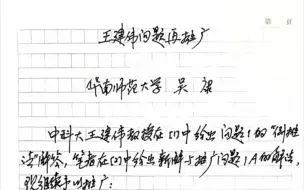 第 页
王建伟问题再推广
华南师范大学 吴康
中科大王建伟教授在[1]中给出问题1的“倒推
法”解答，笔者在[2]中给出新解与推广问题1A的解法，
现继续予以推广：